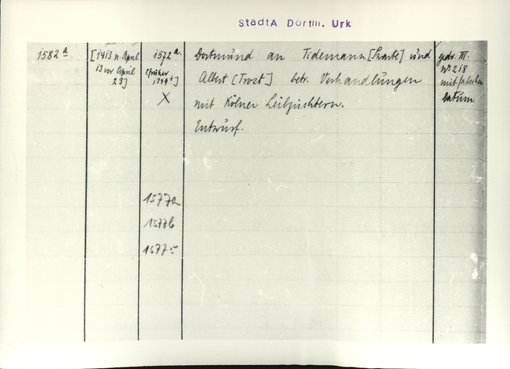 StadtA Dortm. Urk
1582 a.
[1413 n. April
13 vor April
23]
1572 a.
(früher
X
Dortmund an Tidemann [Swarte] und
Albert [Trost] betr. Verhandlungen
mit Kölner Leibzüchtern.
Entwurf.
gedr. III.
No 218
mit falschem
Datum
1577a
1577b
1577c